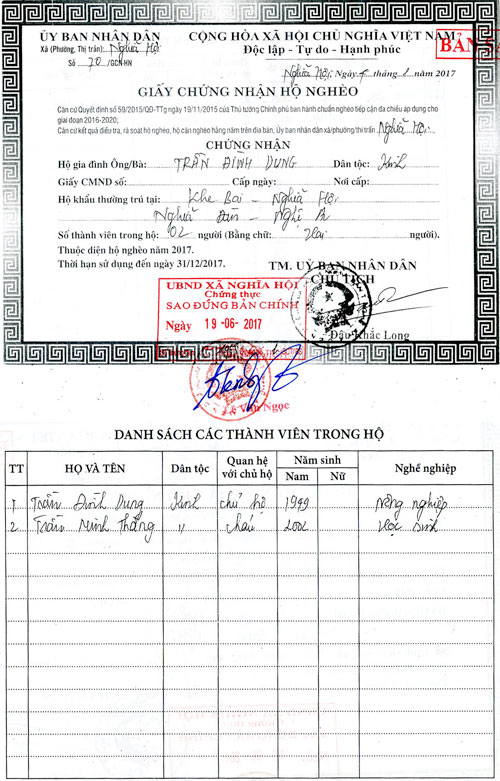 ỦY BAN NHÂN DÂN
Xã (Phường, Thị trấn): Nghĩa Hội
Số 70 /GCN-HN
CỘNG HÒA XÃ HỘI CHỦ NGHĨA VIỆT NAM
Độc lập - Tự do - Hạnh phúc
BẢN S
Nghĩa Hội, Ngày tháng 1 năm 2017
GIẤY CHỨNG NHẬN HỘ NGHÈO
Căn cứ Quyết định số 59/2015/QĐ-TTg ngày 19/11/2015 của Thủ tướng Chính phủ ban hành chuẩn nghèo tiếp cận đa chiều áp dụng cho
giai đoạn 2016-2020;
Căn cứ kết quả điều tra, rà soát hộ nghèo, hộ cận nghèo hằng năm trên địa bàn, Ủy ban nhân dân xã/phường/thị trấn Nghĩa Hội
CHỨNG NHẬN
Hộ gia đình Ông/Bà: TRẦN ĐÌNH DUNG Dân tộc: Kinh
Giấy CMND số: Cấp ngày: Nơi cấp:
Hộ khẩu thường trú tại: Khe Bai - Nghĩa Hội
Nghĩa Đàn - Nghệ An
Số thành viên trong hộ: 02 người (Bằng chữ: Hai người).
Thuộc diện hộ nghèo năm 2017.
Thời hạn sử dụng đến ngày 31/12/2017.
TM. UỶ BAN NHÂN DÂN
CHỦ TỊCH
UBND XÃ NGHĨA HỘI
Chứng thực
SAO ĐÚNG BẢN CHÍNH
Ngày 19-06-2017
Đậu Khắc Long
Văn Ngọc
DANH SÁCH CÁC THÀNH VIÊN TRONG HỘ
TT HỌ VÀ TÊN Dân tộc Quan hệ với chủ hộ Năm sinh Nam Nữ Nghề nghiệp
1 Trần Đình Dung Kinh chủ hộ 1949 Nông nghiệp
2 Trần Minh Thắng " cháu 2002 Học sinh